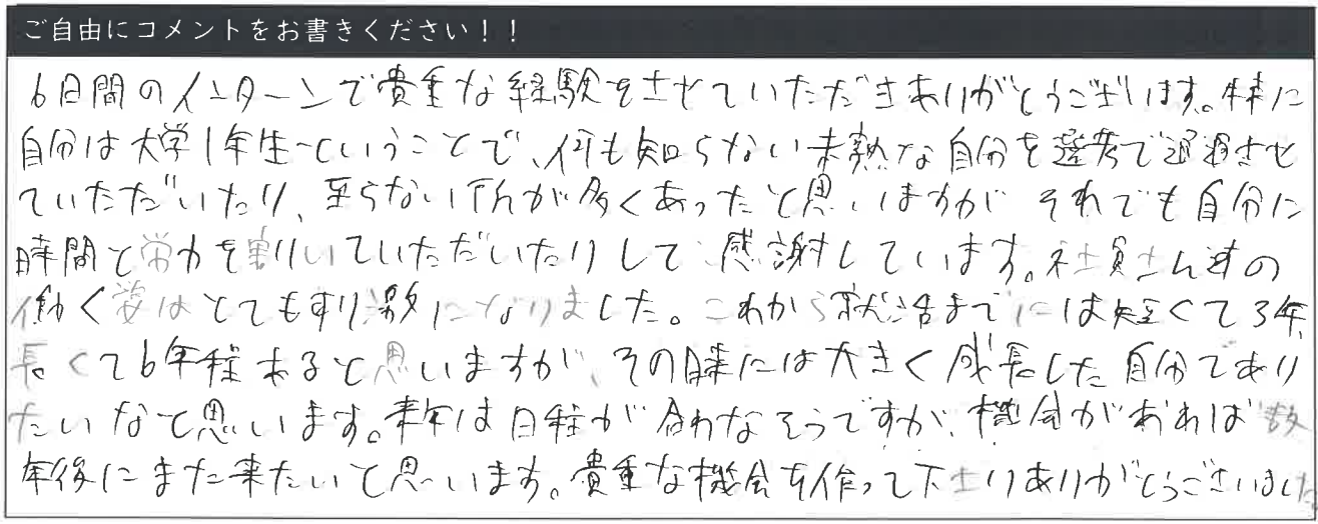 ご自由にコメントをお書きください！！
6日間のインターンで貴重な経験をさせていただきありがとうございます。特に
自分は大学1年生ということで、何も知らない未熟な自分を選考で通過させ
ていただいたり、至らない所が多くあったと思いますが それでも自分に
時間と労力を割いていただいたりして 感謝しています。社員さん達の
働く姿はとても刺激になりました。これから就活までには短くて3年、
長くて6年程あると思いますが、その時には大きく成長した自分であり
たいなと思います。来年は日程が合わなそうですが、機会があれば数
年後にまた来たいと思います。貴重な機会を作って下さりありがとうございました